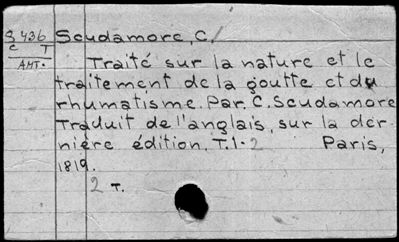 S 436 Scudamore, C.
C T
AMT. Traité sur la nature et le
traitement de la goutte et du
rhumatisme. Par C. Scudamore
Traduit de l'anglais, sur la der
nière édition, T.1-2 Paris,
1819.
2 T.